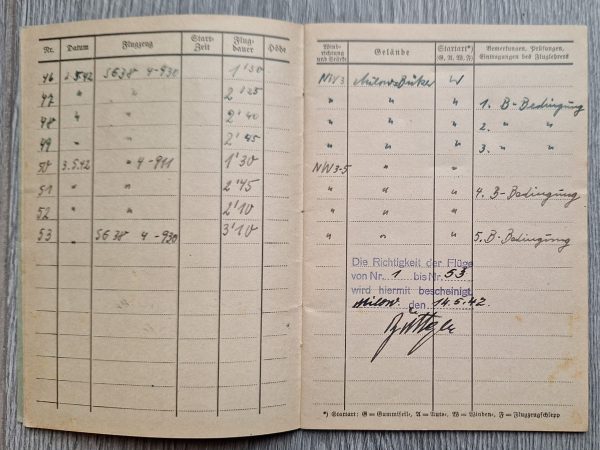 Nr. Datum Flugzeug Start-Zeit Flug-dauer Höhe
46 1.5.42 SG38 4-930 1'30
47 " " 2'25
48 " " 2'40
49 " " 2'45
50 3.5.42 " 4-911 1'30
51 " " 2'45
52 " " 2'10
53 " SG38 4-930 3'10
Wind-richtung und Stärke Gelände Startart*) (G. A. W. F.) Bemerkungen, Prüfungen, Eintragungen des Fluglehrers
NW3 W
" " " 1. B-Bedingung
" " " 2. " "
" " " 3. " "
NW3-5 " "
" " " 4. B-Bedingung
" " "
" " " 5. B-Bedingung
Die Richtigkeit der Flüge
von Nr. 1 bis Nr. 53
wird hiermit bescheinigt.
Milow, den 14.5.42
*) Startart: G = Gummiseil-, A = Auto-, W = Winden-, F = Flugzeugschlepp